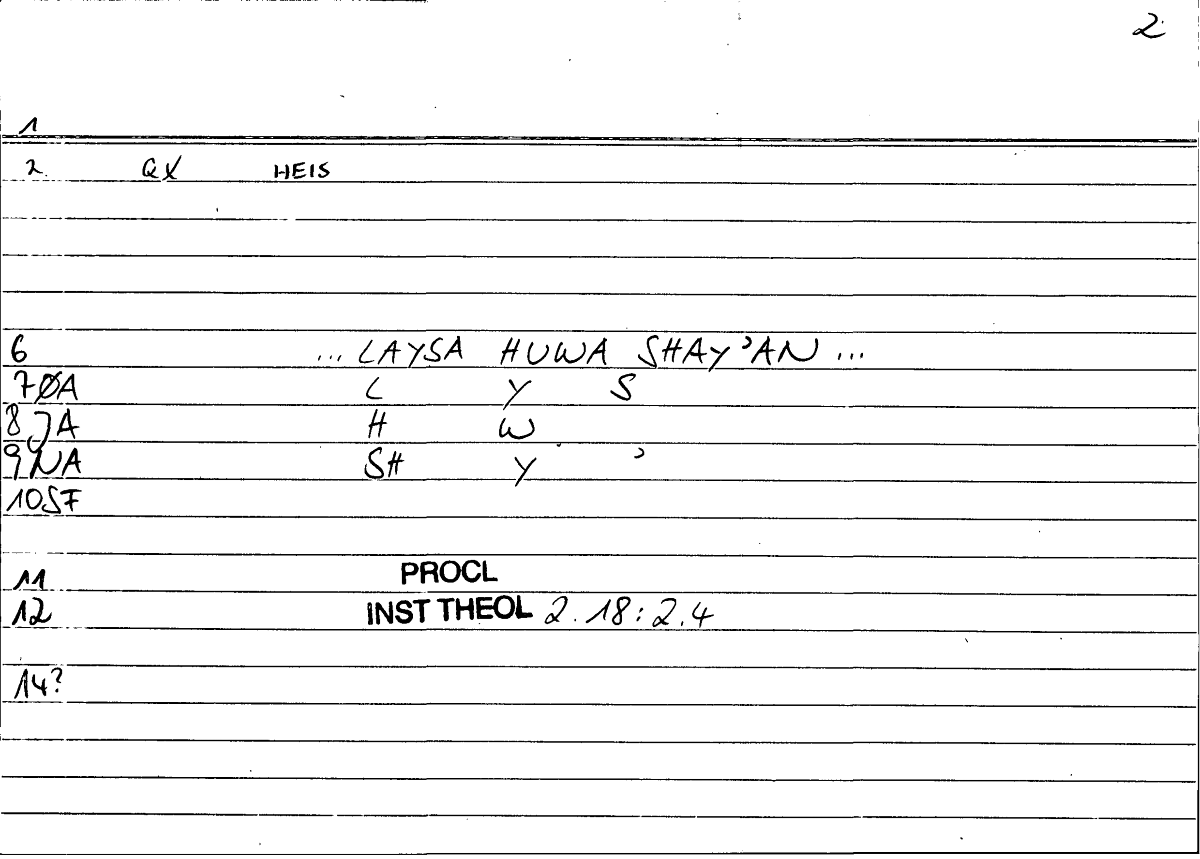 2
1
2. QX HEIS
6 ... LAYSA HUWA SHAY'AN ...
7ØA L Y S
8JA H W
9NA SH Y '
10SF
11 PROCL
12 INST THEOL 2.18:2.4
14?